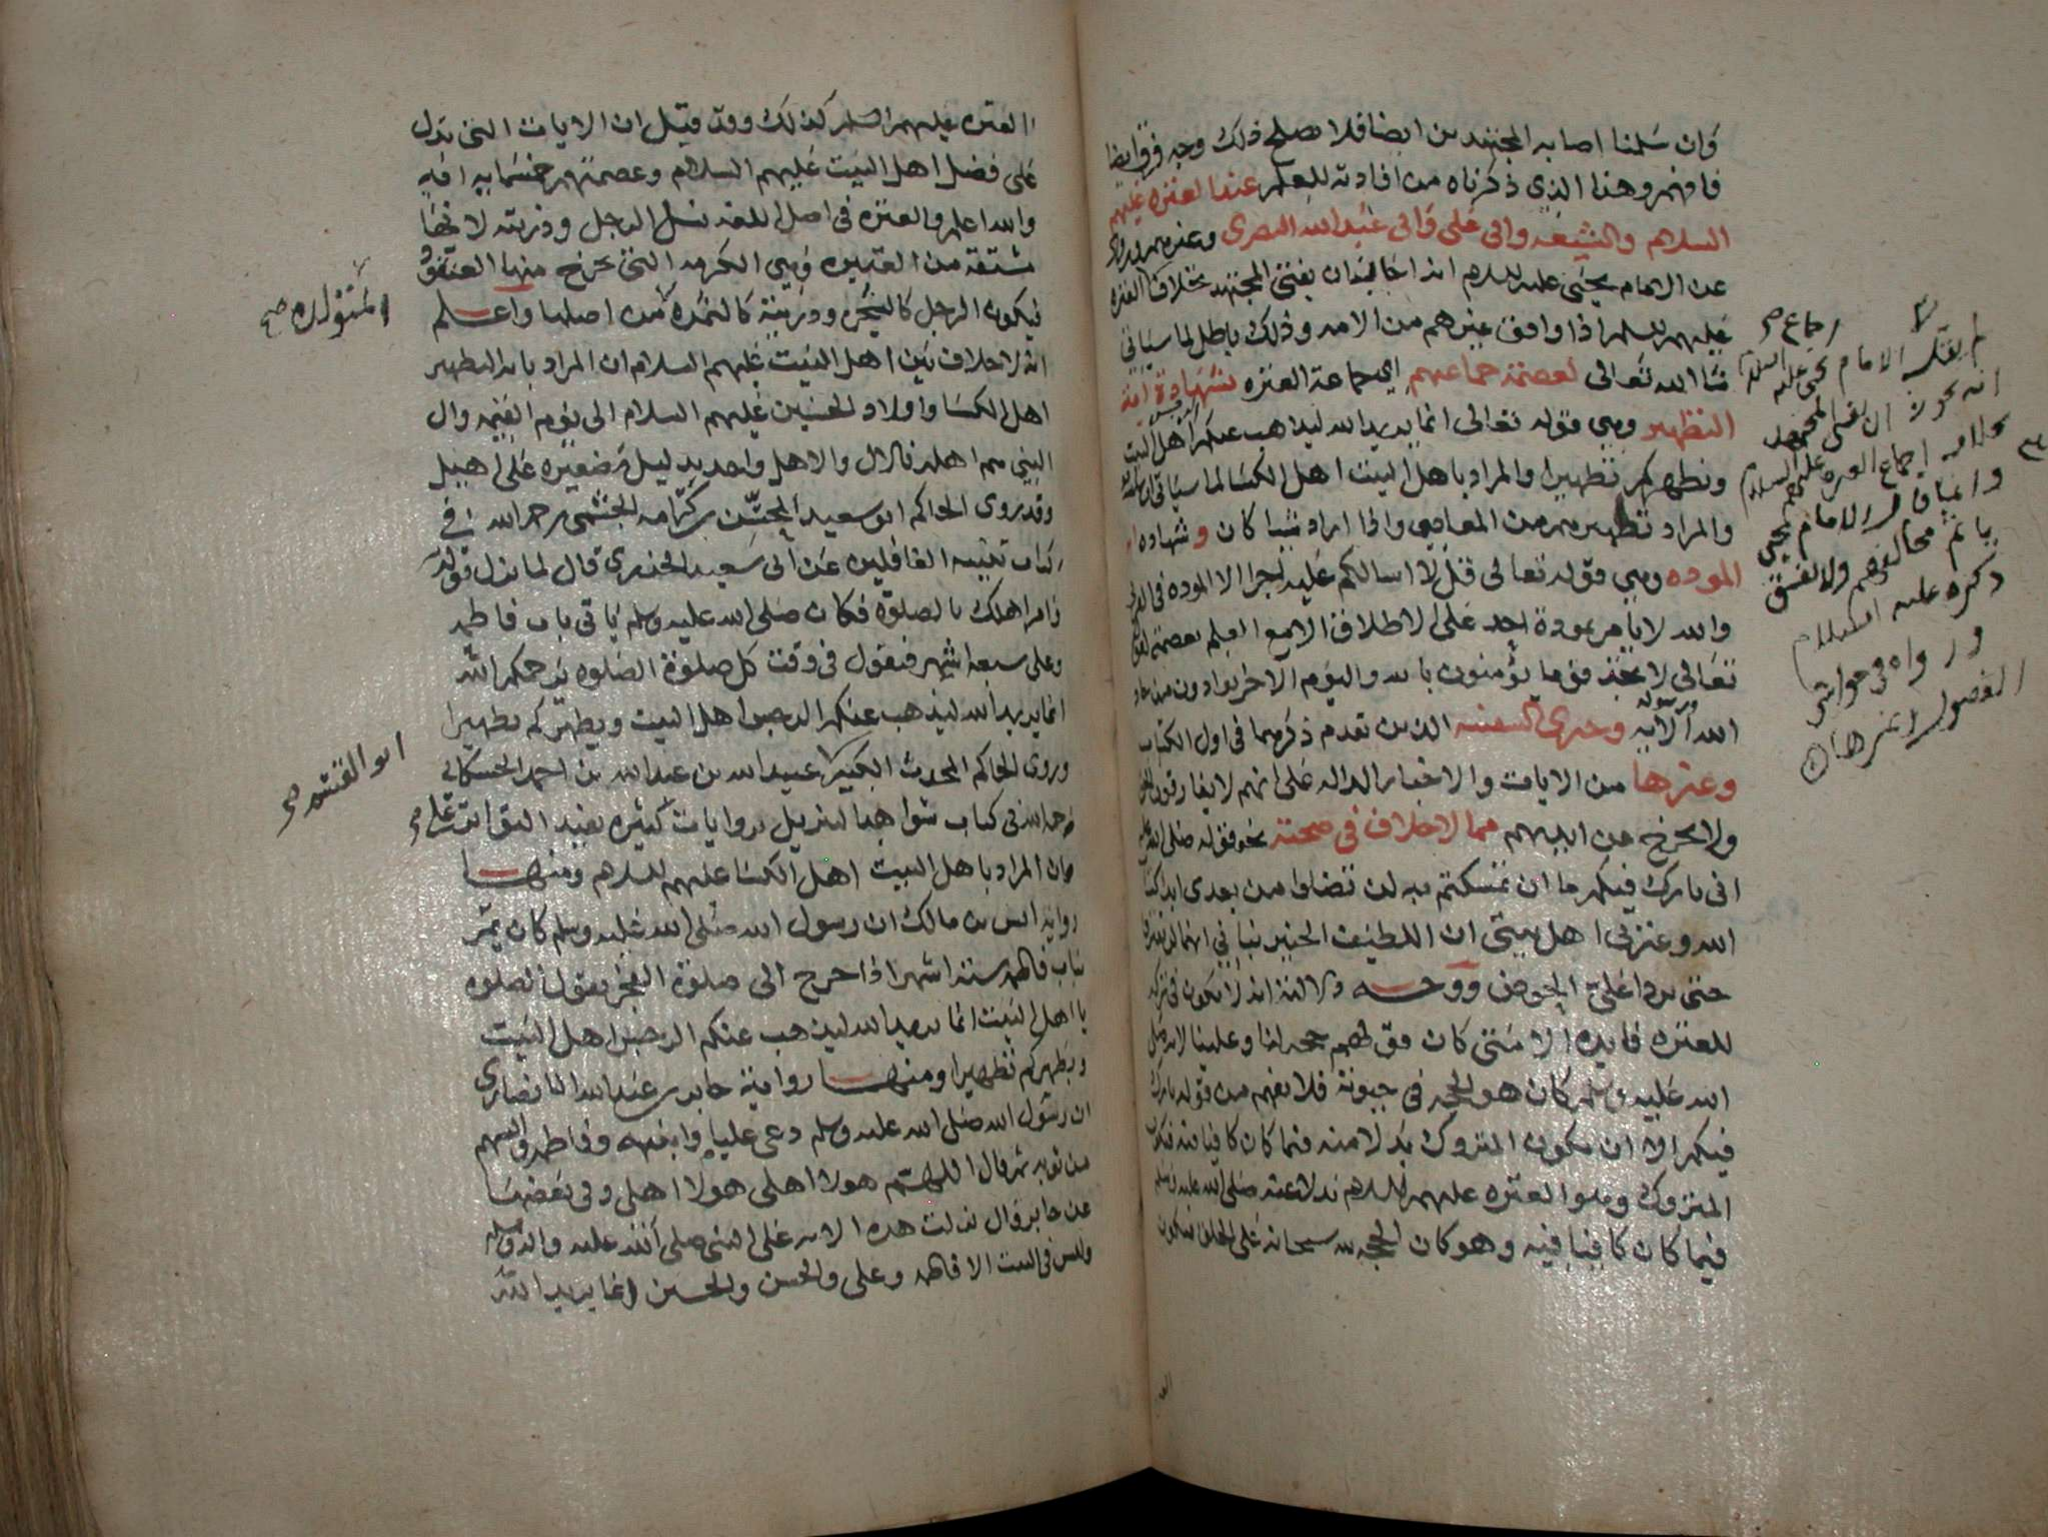 وان سلمنا اصابه المجتهدين ايضا فلا يصلح ذلك وجه فرق ايضا
فافهم وهذا الذي ذكرناه من افادته للعلم عند العتره عليهم
السلام والشيعه وابي علي وابي عبد الله البصري وغيرهم وروي
عن الامام يحيى عليه السلم انه اجاز ان يفتي المجتهد بخلاف العتره
عليهم السلم اذا وافق غيرهم من الامه وذلك باطل لما سياتي
شا الله تعالى لعصمة جماعتهم اي جماعة العتره بشهادة اية
التطهير وهي قوله تعالى انما يريد الله ليذهب عنكم الرجس اهل البيت
ويطهركم تطهيرا والمراد باهل البيت اهل الكسا لما سياتي ان شاالله
والمراد تطهيرهم من المعاصي واذا اراد شيا كان وشهاده ايه
الموده وهي قوله تعالى قل لا اسالكم عليه اجرا الا الموده في القربى
والله لا يامر بموده احد على الاطلاق الا مع العلم بعصمته لقوله
تعالى لا تجد قوما يؤمنون بالله واليوم الاخر يوادون من حاد
الله ورسوله الايه وخبري السفينه الذين تقدم ذكرهما في اول الكتاب
وغيرها من الايات والاخبار الداله على انهم لا يفارقون الحق
ولا يخرج عن ايديهم مما لا خلاف في صحته نحو قوله صلى الله عليه
اني تارك فيكم ما ان تمسكتم به لن تضلوا من بعدي ابدا كتاب
الله وعترتي اهل بيتي ان اللطيف الخبير نباني انهما لن يفترقا
حتى يردا علي الحوض ووجه دلالته انه لا يكون في تركه
للعتره فايده الا متى كان قولهم حجه لنا وعلينا لانه صلى
الله عليه وسلم كان هو الحجه في حيوته فلا يفهم من قوله تارك
فيكم الا ان يكون المتروك بدلا منه فيما كان كافيا فيه فيكون
المتروك وهو العتره عليهم السلام بدلا عنه صلى الله عليه وسلم
فيما كان كافيا فيه وهو كان الحجه لله سبحانه على الخلق فيكون
لم يقل الامام يحيى عليه السلام
انه يجوز ان يفتي المجتهد
بخلاف اجماع العتره عليهم السلام
وانما قال الامام يحيى
يا ثم مخالفهم ولا يفسق
ذكره عليه السلام
ورواه في حواشي
الفصول
العتره عليهم السلم كذلك وقد قيل ان الايات التي تدل
على فضل اهل البيت عليهم السلام وعصمتهم خمسمايه ايه
والله اعلم والعتره في اصل اللغه نسل الرجل وذريته لانها
مشتقة من العتيره وهي الكرمه التي يخرج منها العنقود
فيكون الرجل كالشجره وذريته كالثمره من اصلها واعلم
انه لا خلاف بين اهل البيت عليهم السلام ان المراد بايه التطهير
اهل الكسا واولاد الحسنين عليهم السلام الى يوم القيمه وال
النبي هم اهله فالال والاهل واحد بدليل تصغيره على اهيل
وقد روى الحاكم ابو سعيد المحسن بن كرامه الجشمي رحمه الله في
كتاب تنبيه الغافلين عن ابي سعيد الخدري قال لما نزل قوله
وامر اهلك بالصلوة فكان صلى الله عليه وسلم ياتي باب فاطمه
وعلي سبعه اشهر فيقول في وقت كل صلوة الصلوه يرحمكم الله
انما يريد الله ليذهب عنكم الرجس اهل البيت ويطهركم تطهيرا
وروى الحاكم المحدث الكبير عبيد الله بن عبد الله بن احمد الحسكاني
رحمه الله في كتاب شواهد التنزيل روايات كثيره تفيد التواتر على
ان المراد باهل البيت اهل الكسا عليهم السلام ومنها
روايه انس بن مالك ان رسول الله صلى الله عليه وسلم كان يمر
بباب فاطمه ستة اشهر اذا خرج الى صلوة الفجر يقول الصلوه
يا اهل البيت انما يريد الله ليذهب عنكم الرجس اهل البيت
ويطهركم تطهيرا ومنها رواية جابر بن عبد الله الانصاري
ان رسول الله صلى الله عليه وسلم دعى عليا وابنيه وفاطمه والبسهم
من ثوبه ثم قال اللهم هولا اهلي هولا اهلي وفي بعضها
عن جابر قال نزلت هذه الايه على النبي صلى الله عليه واله وسلم
وليس في البيت الا فاطمه وعلي والحسن والحسين انما يريد الله
المتولده صح
ابو القاسم صح